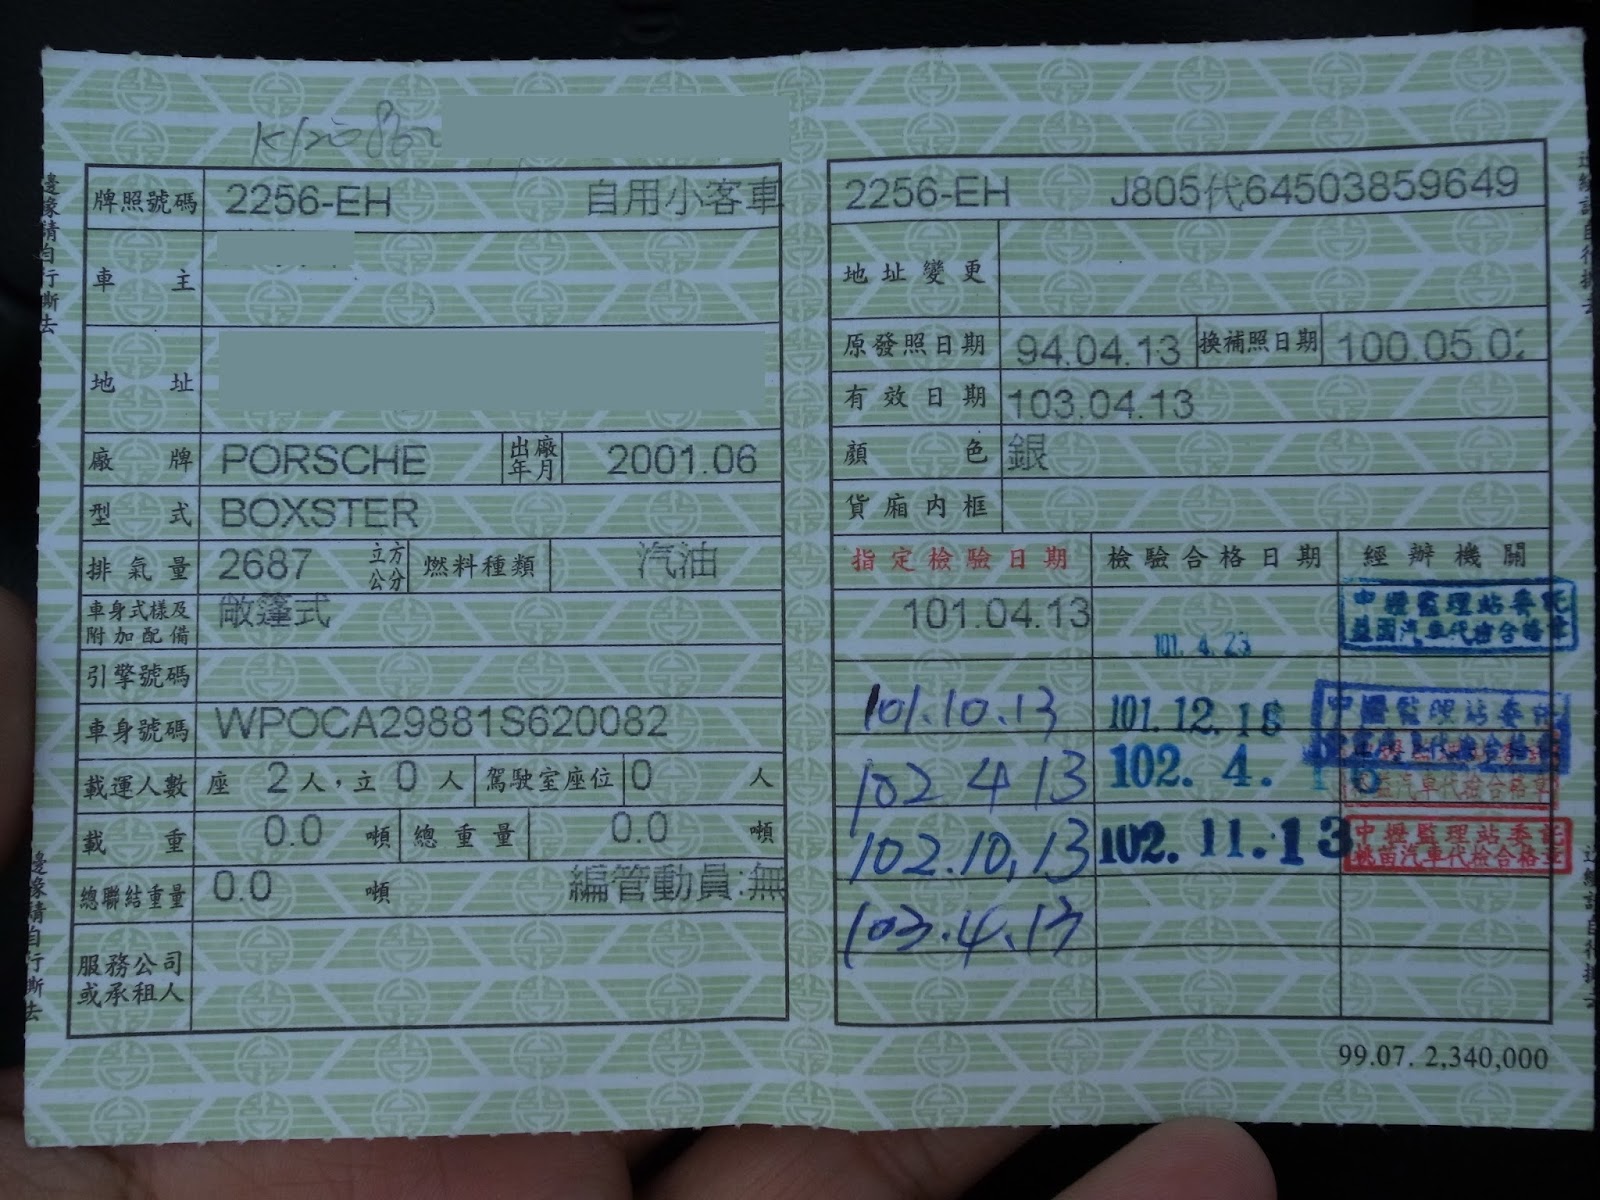 牌照號碼 2256-EH 自用小客車
車主
地址
廠牌 PORSCHE 出廠年月 2001.06
型式 BOXSTER
排氣量 2687 立方公分 燃料種類 汽油
車身式樣及附加配備 敞篷式
引擎號碼
車身號碼 WPOCA29881S620082
載運人數 座 2 人,立 0 人 駕駛室座位 0 人
載重 0.0 噸 總重量 0.0 噸
總聯結重量 0.0 噸 編管動員:無
服務公司或承租人
2256-EH J805代64503859649
地址變更
原發照日期 94.04.13 換補照日期 100.05.02
有效日期 103.04.13
顏色 銀
貨廂內框
指定檢驗日期 檢驗合格日期 經辦機關
101.04.13 101.4.23 中壢監理站委託
汽車代檢合格章
101.10.13 101.12.18 中壢監理站委託
102 4 13 102.4.16 汽車代檢合格章
102.10.13 102.11.13 中壢監理站委託
桃苗汽車代檢合格章
103.4.13
99.07. 2,340,000
邊緣請自行撕去
邊緣請自行撕去